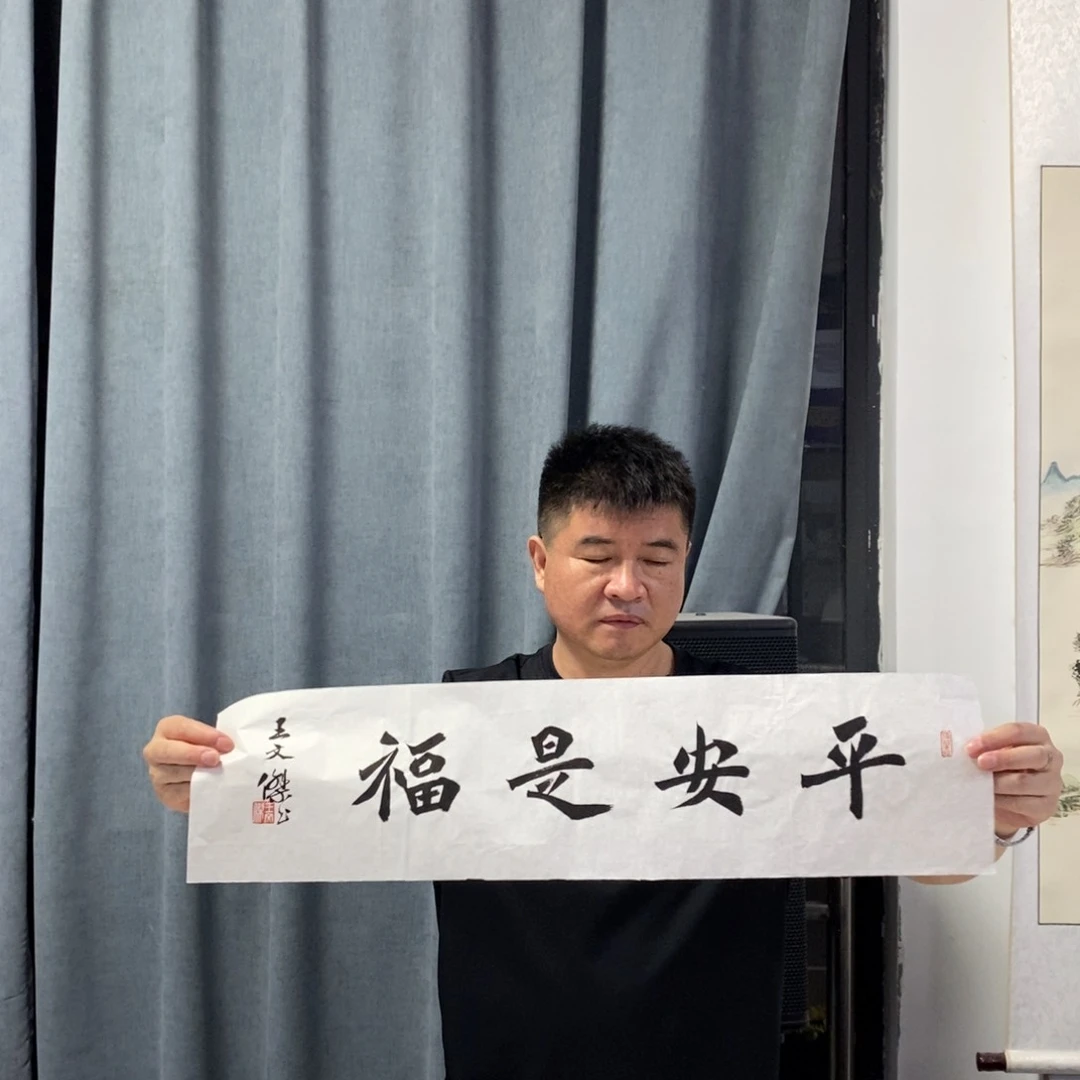 平安是福
王文傑